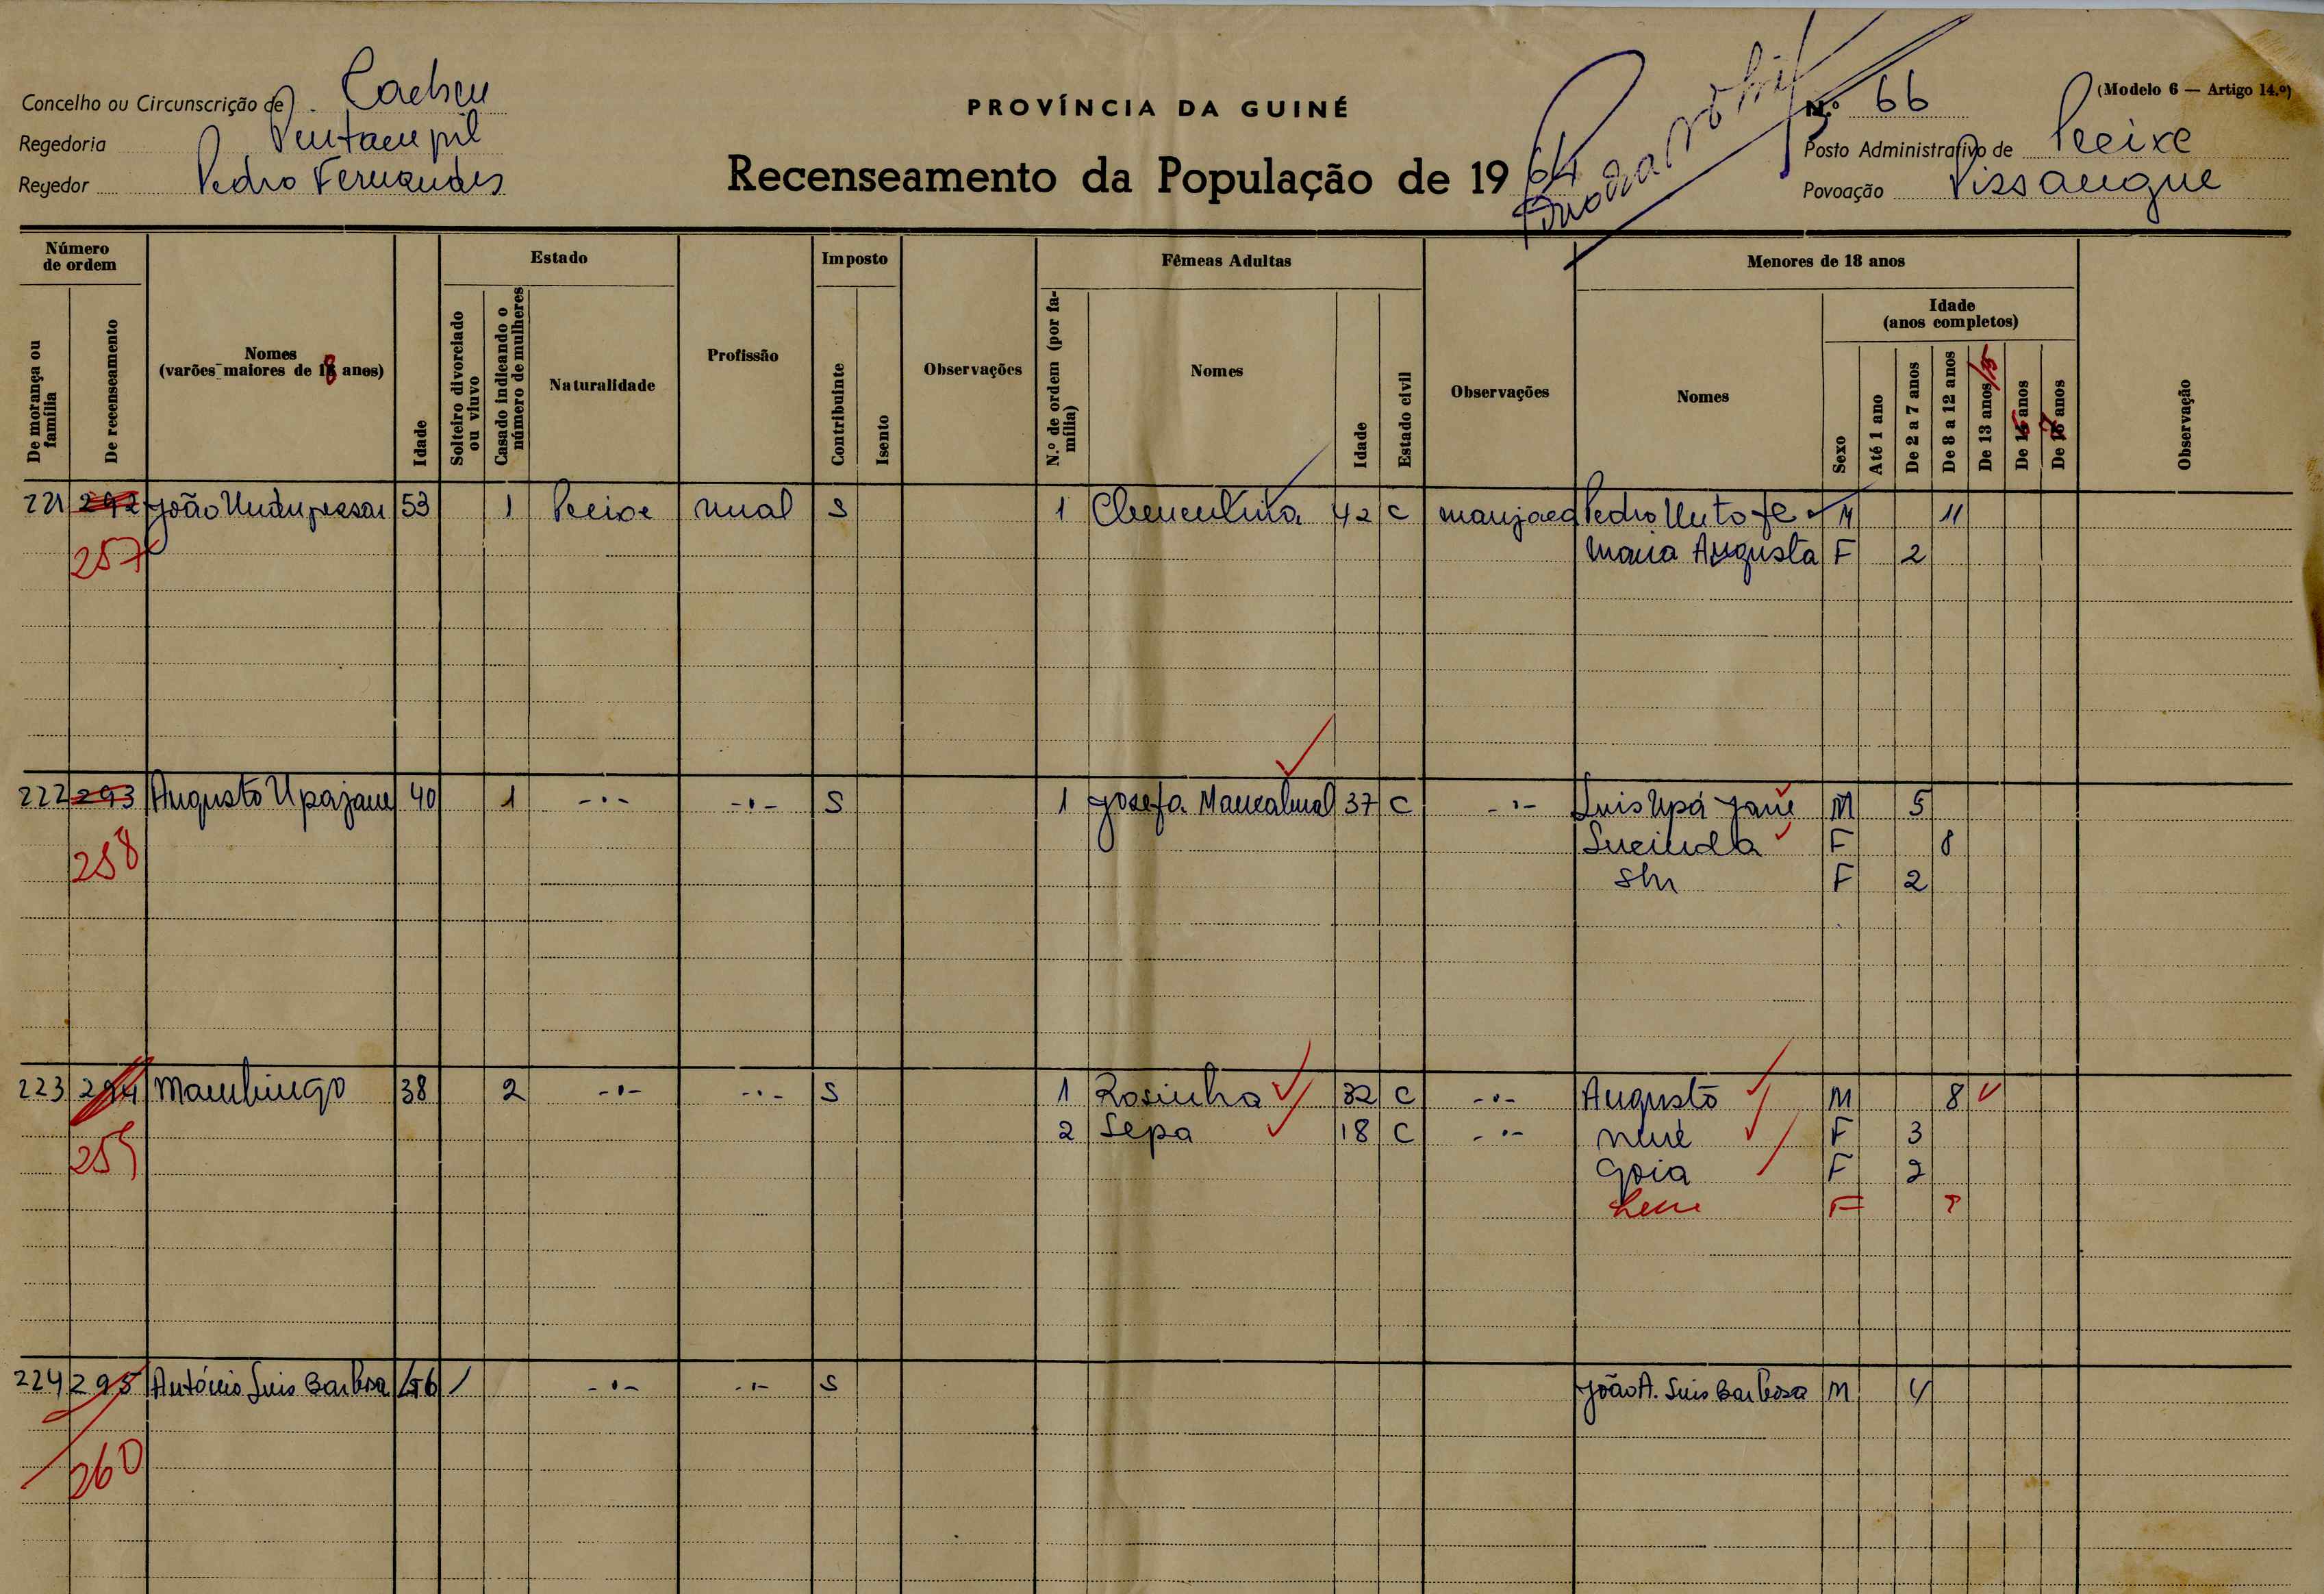 Concelho ou Circunscrição de Cacheu
PROVÍNCIA DA GUINÉ
N.º 66
(Modelo 6 — Artigo 14.º)
Regedoria
Posto Administrativo de Pecixe
Regedor Pedro Fernandes
Recenseamento da População de 1964
Povoação
Número de ordem
De morança ou família
De recenseamento
Nomes (varões maiores de 18 anos)
Idade
Estado
Solteiro divorciado ou viuvo
Casado indicando o número de mulheres
Naturalidade
Profissão
Imposto
Contribuinte
Isento
Observações
Fêmeas Adultas
N.º de ordem (por família)
Nomes
Idade
Estado civil
Observações
Menores de 18 anos
Nomes
Sexo
Idade (anos completos)
Até 1 ano
De 2 a 7 anos
De 8 a 12 anos
De 13 anos/15
De 16 anos
De 17 anos
Observação
221 292 João 53 1 Pecixe rural S 1 Clementina 42 C manjaca Pedro M 11
257 Maria Augusta F 2
222 293 Augusto Upajane 40 1 -·- -·- S 1 Josefa 37 C -·- Luis Upá Jane M 5
258 Lucinda F 8
F 2
223 294 Mambingo 38 2 -·- -·- S 1 Rosinha 32 C -·- Augusto M 8
2 Sepa 18 C -·- F 3
259 Goia F 2
F
224 295 António Luis Barbosa 56 -·- -·- S João A. Luis Barbosa M 4
260